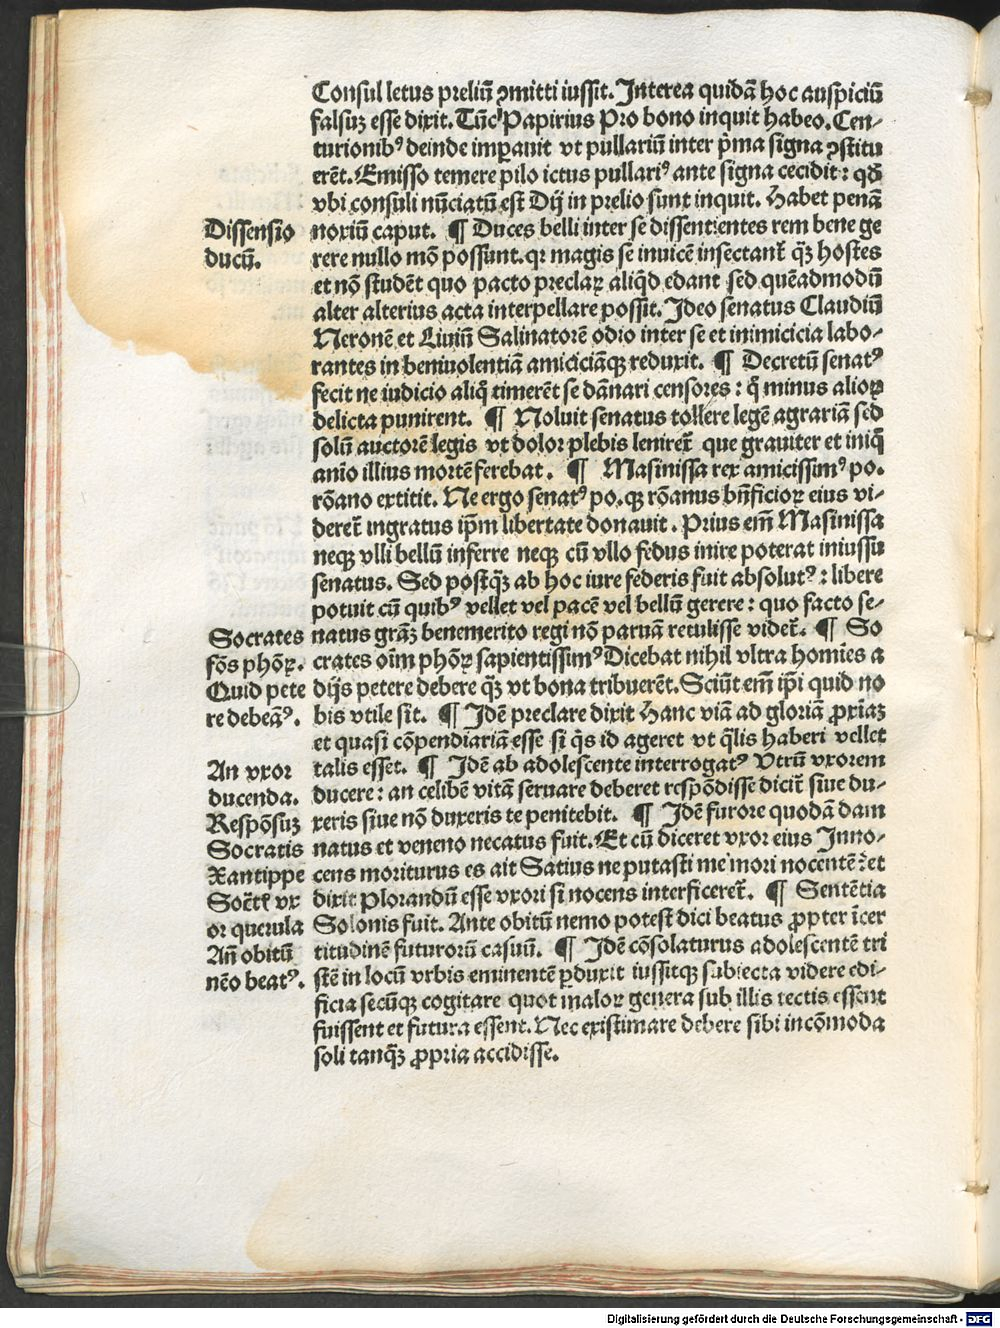 Consul letus preliū ꝯmitti iussit. Interea quidā hoc auspiciū
falsuꝫ esse dixit. Tūc Papirius Pro bono inquit habeo. Cen-
turionibꝰ deinde imꝑauit vt pullariū inter p̄ma signa ꝯstitu
erēt. Emisso temere pilo ictus pullariꝰ ante signa cecidit: qđ
vbi consuli nūciatū est Dij in prelio sunt inquit. Habet penā
Dissensio
ducū.
noxiū caput. ¶ Duces belli inter se dissentientes rem bene ge
rere nullo mō possunt. qꝛ magis se inuicē insectant̄ qꝫ̄ hostes
et nō studēt quo pacto preclaꝝ aliqd̄ edant sed quēadmodū
alter alterius acta interpellare possit. Ideo senatus Claudiū
Neronē et Liuiū Salinatorē odio inter se et inimicicia labo-
rantes in beniuolentiā amiciciāqꝫ reduxit. ¶ Decretū senatꝰ
fecit ne iudicio aliq̄ timerēt se dānari censores: q̄ minus alioꝝ
delicta punirent. ¶ Noluit senatus tollere legē agrariā sed
solū auctorē legis vt dolor plebis leniret̄ que grauiter et iniq̄
anīo illius mortē ferebat. ¶ Masinissa rex amicissimꝰ po.
rōano extitit. Ne ergo senatꝰ po.qꝫ rōanus bn̄ficioꝝ eius vi-
deret̄ ingratus ip̄m libertate donauit. Prius em̄ Masinissa
neqꝫ vlli bellū inferre neqꝫ cū vllo fedus inire poterat iniussu
senatus. Sed postqꝫ̄ ab hoc iure federis fuit absolutꝰ: libere
potuit cū quibꝰ vellet vel pacē vel bellū gerere: quo facto se-
Socrates
fōs phōꝝ.
Quid pete
re debeāꝰ.
natus grāꝫ benemerito regi nō paruā retulisse videt̄. ¶ So
crates oīm phōꝝ sapientissimꝰ Dicebat nihil vltra homīes a
dijs petere debere qꝫ̄ vt bona tribuerēt. Sciūt em̄ ip̄i quid no
bis vtile sit. ¶ Idē preclare dixit Hanc viā ad gloriā ꝓxīaꝫ
et quasi cōpendiariā esse si q̄s id ageret vt q̄lis haberi vellet
An vxor
ducenda.
Respōsuꝫ
Socratis
Xantippe
Soc̄t̄ vx
or querula
An̄ obitū
nēo beatꝰ.
talis esset. ¶ Idē ab adolescente interrogatꝰ Vtrū vxorem
ducere: an celibē vitā seruare deberet respōdisse dicit̄ siue du-
xeris siue nō duxeris te penitebit. ¶ Idē furore quodā dam
natus et veneno necatus fuit. Et cū diceret vxor eius Inno-
cens moriturus es ait Satius ne putasti me mori nocentē: et
dixit Plorandū esse vxori si nocens interficeret̄. ¶ Sentētia
Solonis fuit. Ante obitū nemo potest dici beatus ꝓpter īcer
titudinē futurorū casuū. ¶ Idē cōsolaturus adolescentē tri
stē in locū vrbis eminentē ꝑduxit iussitqꝫ subiecta videre edi-
ficia secūqꝫ cogitare quot maloꝝ genera sub illis tectis essent
fuissent et futura essent. Nec existimare debere sibi incōmoda
soli tanqꝫ̄ ꝓpria accidisse.
Digitalisierung gefördert durch die Deutsche Forschungsgemeinschaft - DFG